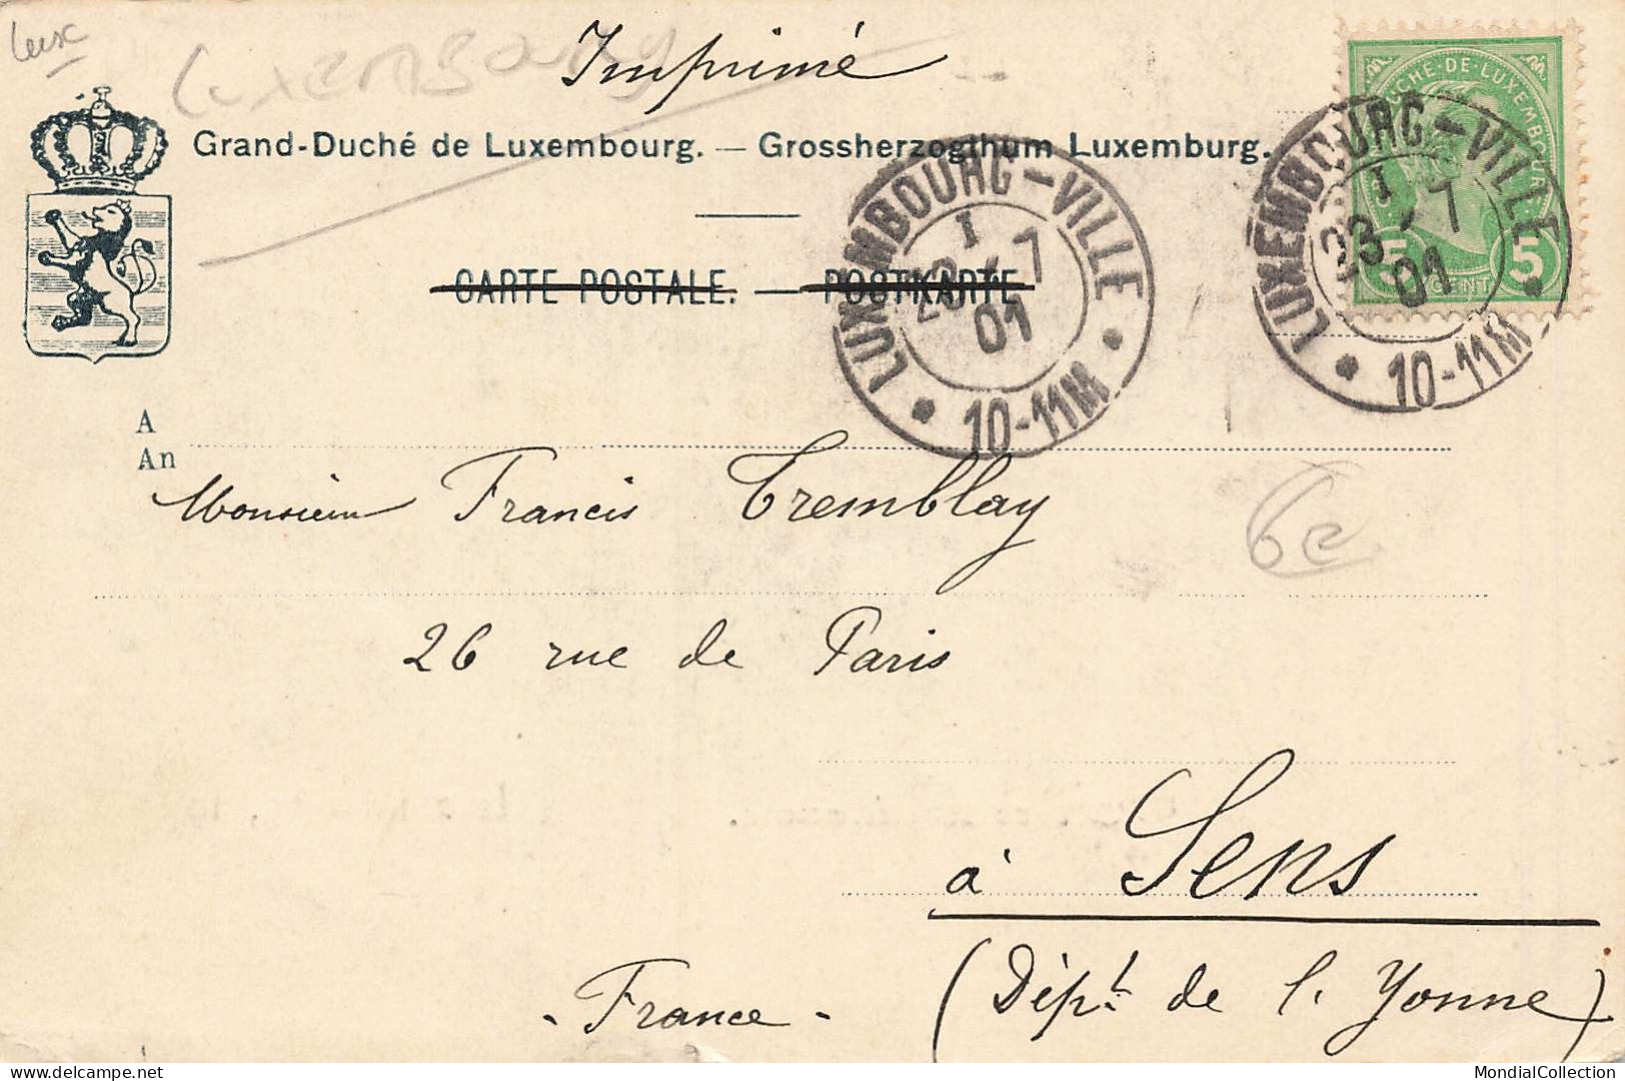 luxe
Luxembourg
Imprimé
Grand-Duché de Luxembourg. — Grossherzogthum Luxemburg.
CARTE POSTALE. — POSTKARTE
LUXEMBOURG-VILLE
I
23-7
01
10-11M
G-DUCHE-DE-LUXEMBOURG
5 CENT 5
LUXEMBOURG-VILLE
I
23-7
01
10-11M
A
An
Monsieur Francis Tremblay
6e
26 rue de Paris
à Sens
(Dépt. de l. Yonne)
- France -
MondialCollection